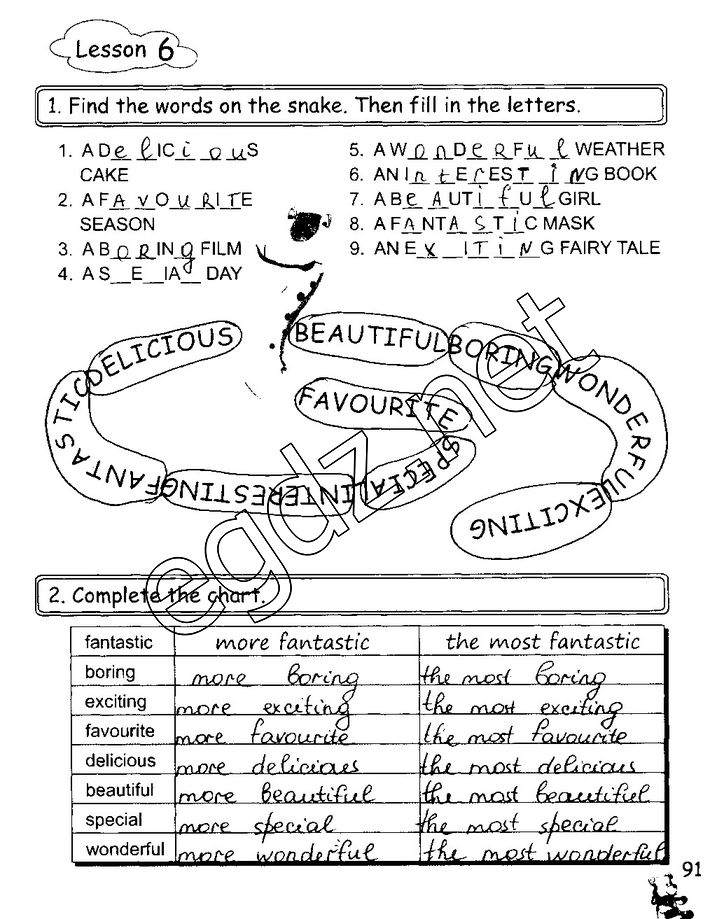 Lesson 6
1. Find the words on the snake. Then fill in the letters.
1. A DelICiouS
CAKE
2. A FAVOURITE
SEASON
3. A BORINg FILM
4. A S_E_IA_ DAY
5. A WonDERFul WEATHER
6. AN IntEREST_iNG BOOK
7. A BeAUTifulGIRL
8. A FANTASTiC MASK
9. AN EX_ITiNG FAIRY TALE
DELICIOUS
BEAUTIFUL
BORING
WONDERFUL
FANTASTIC
FAVOURITE
SPECIAL
INTERESTING
EXCITING
egdz.net
2. Complete the chart.
fantastic more fantastic the most fantastic
boring more boring the most boring
exciting more exciting the most exciting
favourite more favourite the most favourite
delicious more delicious the most delicious
beautiful more beautiful the most beautiful
special more special the most special
wonderful more wonderful the most wonderful
91